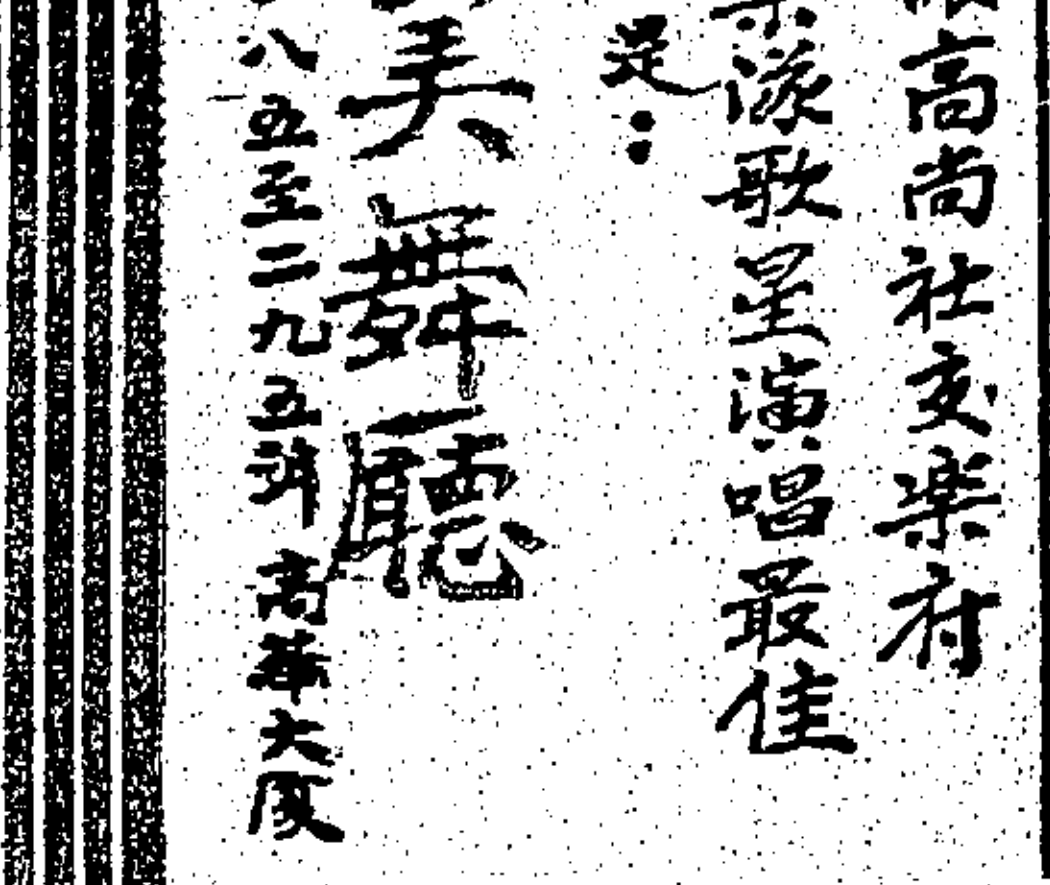 高尚社交楽府
隊歌星演唱最佳
是：
美舞廳
八五至二九五 高華大厦